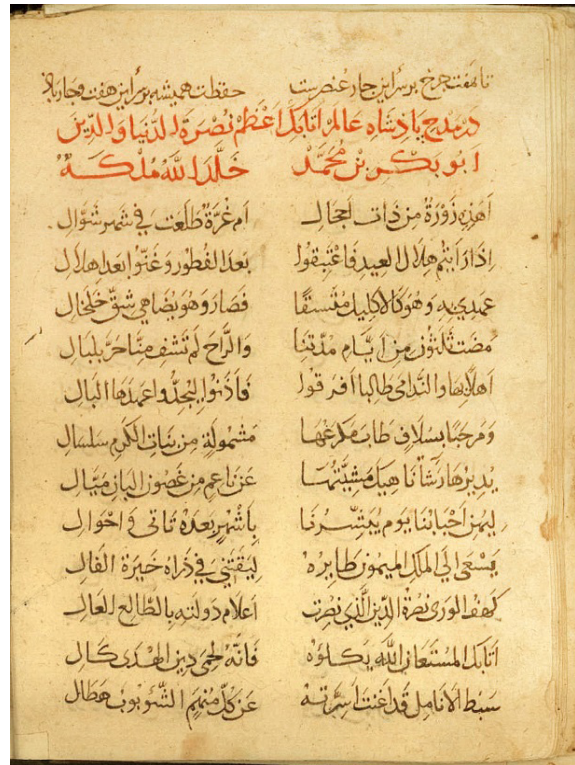 تا هفت چرخ بر سر این چار عنصرست حفظت همیشه بر سر این هفت و چار باد
در مدح پادشاه عالم اتابك اعظم نصرة الدنيا والدين
ابو بكر بن محمد خلد الله ملكه
اهذه زورة من ذات احجال ام غرة طلعت في شهر شوال
اذا رايتم هلال العيد فاغتبقوا بعد الفطور وغنوا بعد اهلال
عهدي به وهو كالاكليل متسقا فصار وهو يضاهي شق خلخال
مضت ثلثون من ايام مدتنا والراح لم تشف منا حر بلبال
اهلا بها والندامى طالبا افرقوا فاذنوا لتجدوا عهدها البال
ومرحبا بسلاف طاب مكرعها مشمولة من بنات الكرم سلسال
يديرها رشأ ناهيك مشيتها عن ناعم من غصون البان ميال
ليهن احبابنا يوم يبشرنا باشهر بعده تاتي واحوال
يسعى الى الملك الميمون طايره ليقتني في ذراه خيرة الفال
كهف الورى نصرة الدين الذي نصرت اعلام دولته بالطالع العال
اتابك المستعان الله يكلؤه فانه لحمى دين الهدى كال
سبط الانامل قد اغنت اسرته عن كل منهمر الشؤبوب هطال